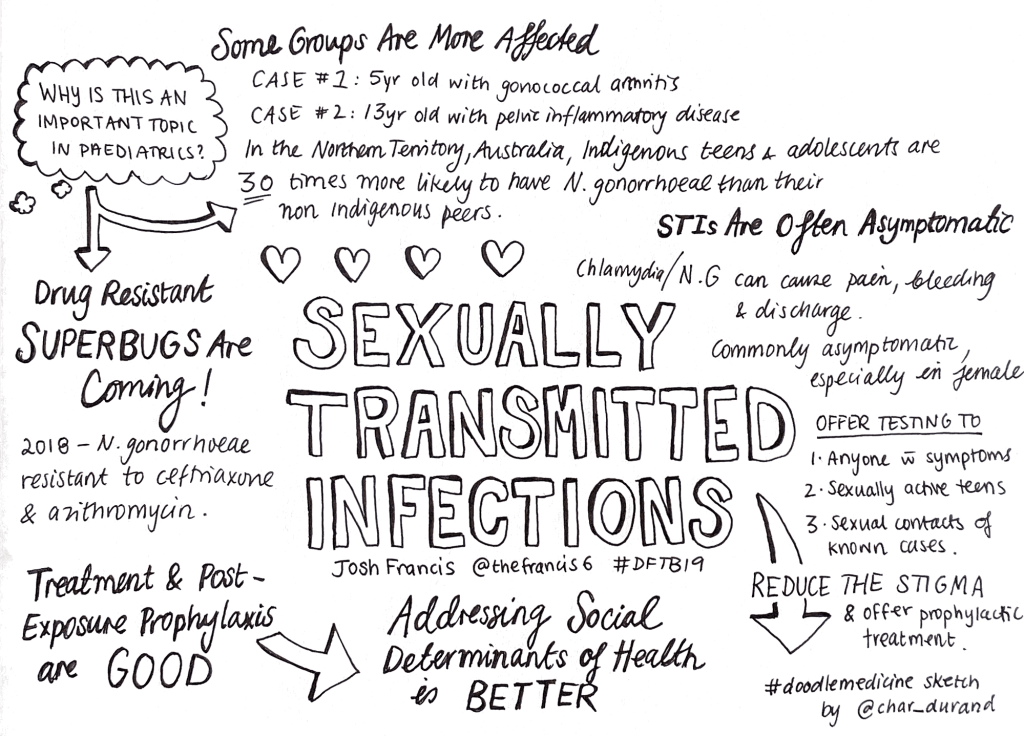 Some Groups Are More Affected
WHY IS THIS AN
IMPORTANT TOPIC
IN PAEDIATRICS?
CASE #1: 5yr old with gonococcal arthritis
CASE #2: 13yr old with pelvic inflammatory disease
In the Northern Territory, Australia, Indigenous teens & adolescents are
30 times more likely to have N. gonorrhoeae than their
non Indigenous peers.
Drug Resistant
SUPERBUGS Are
Coming!
2018 – N. gonorrhoeae
resistant to ceftriaxone
& azithromycin.
STIs Are Often Asymptomatic
Chlamydia/N.G can cause pain, bleeding
& discharge.
Commonly asymptomatic,
especially in female
SEXUALLY
TRANSMITTED
INFECTIONS
Josh Francis @thefrancis6 #DFTB19
OFFER TESTING TO
1. Anyone w̄ symptoms
2. Sexually active teens
3. Sexual contacts of
known cases.
REDUCE THE STIGMA
& offer prophylactic
treatment.
Treatment & Post-
Exposure Prophylaxis
are GOOD
Addressing Social
Determinants of Health
is BETTER
#doodlemedicine sketch
by @char_durand